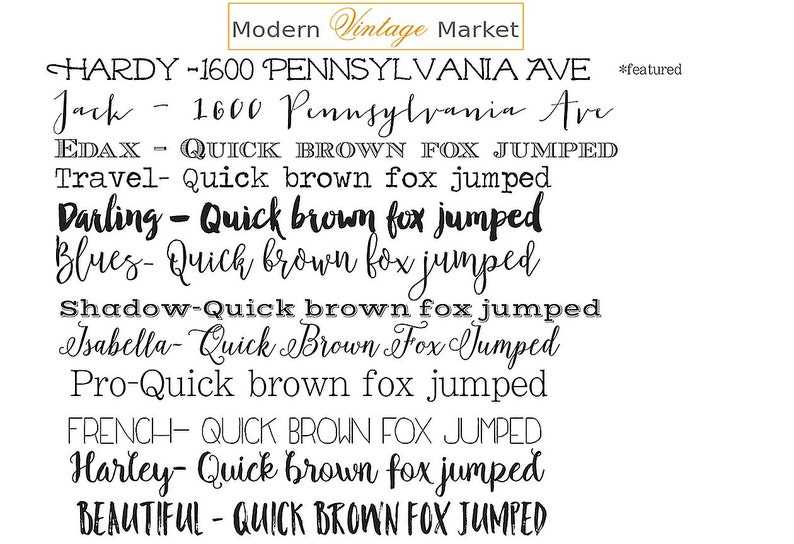 Modern Vintage Market
HARDY -1600 PENNSYLVANIA AVE *featured
Jack - 1600 Pennsylvania Ave
EDAX - QUICK BROWN FOX JUMPED
Travel- Quick brown fox jumped
Darling - Quick brown fox jumped
Blues- Quick brown fox jumped
Shadow-Quick brown fox jumped
Isabella- Quick Brown Fox Jumped
Pro-Quick brown fox jumped
FRENCH- QUICK BROWN FOX JUMPED
Harley- Quick brown fox jumped
BEAUTIFUL - QUICK BROWN FOX JUMPED